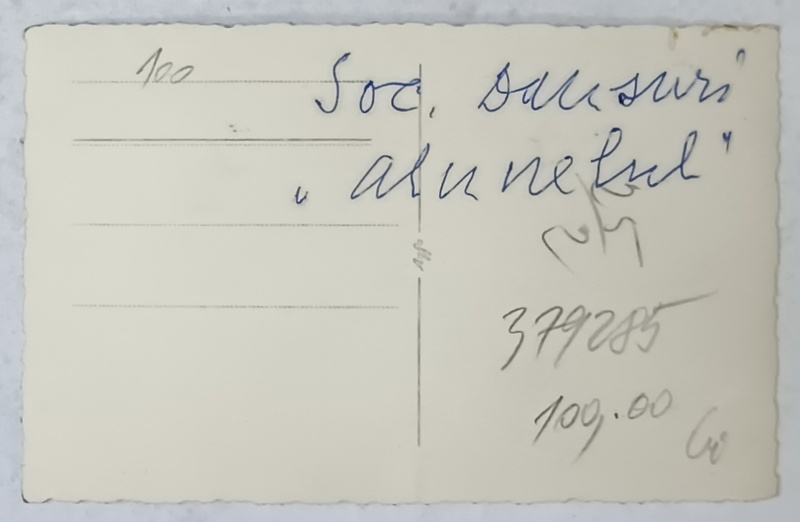 100
Soc. Dansuri
„Alunelul”
379285
100.00